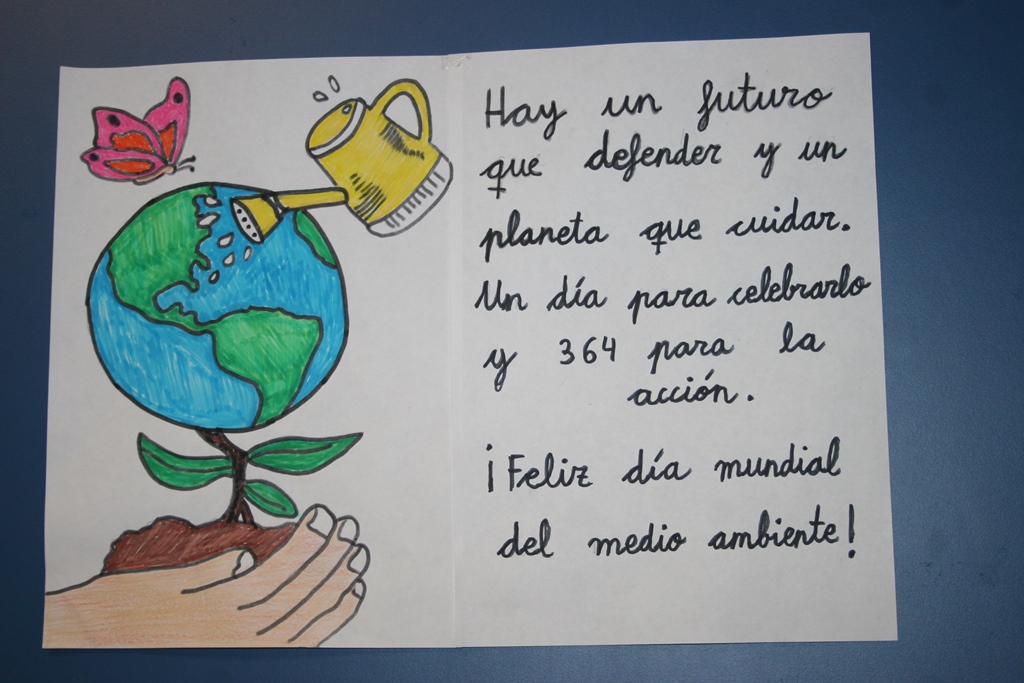 Hay un futuro
que defender y un
planeta que cuidar.
Un día para celebrarlo
y 364 para la
acción.
¡Feliz día mundial
del medio ambiente!